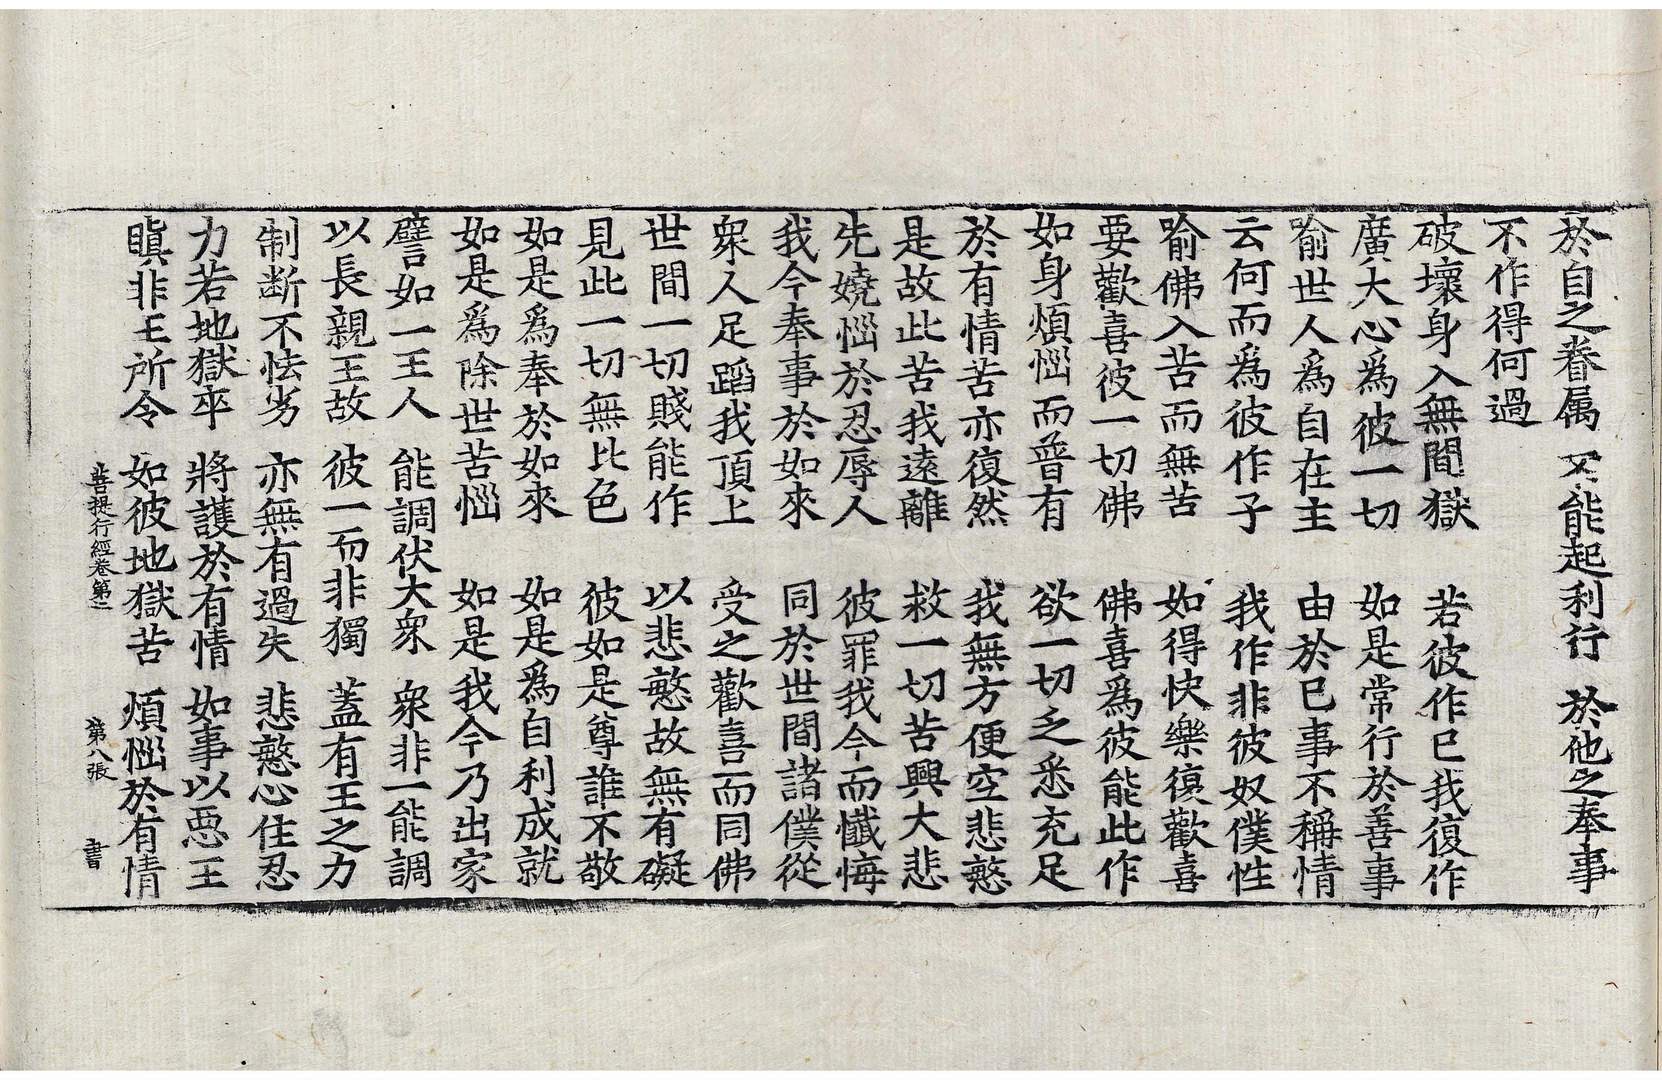 於自之眷属 不能起利行 於他之奉事
不作得何過
破壞身入無間獄 若彼作已我復作
廣大心為彼一切 如是常行於善事
喻世人為自在主 由於己事不稱情
云何而為彼作子 我作非彼奴僕性
喻佛入苦而無苦 如得快樂復歡喜
要歡喜彼一切佛 佛喜為彼能此作
如身煩惱而普有 欲一切乏悉充足
於有情苦亦復然 我無方便空悲愍
是故此苦我遠離 救一切苦興大悲
先嬈惱於忍辱人 彼罪我今而懺悔
我今奉事於如來 同於世間諸僕從
衆人足蹈我頂上 受之歡喜而同佛
世間一切賤能作 以悲愍故無有礙
見此一切無比色 彼如是尊誰不敬
如是為奉於如來 如是為自利成就
如是為除世苦惱 如是我今乃出家
譬如一王人 能調伏大衆 衆非一能調
以長親王故 彼一而非獨 蓋有王之力
制断不怯劣 亦無有過失 悲愍心住忍
力若地獄卒 將護於有情 如事以惡王
瞋非王所令 如彼地獄苦 煩惱於有情
菩提行經卷第二 第八張 書